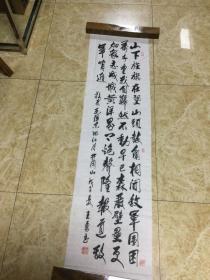 山下旌旗在望山头鼓角相闻敌军围困
万千重我自岿然不动早已森严壁垒更
加众志成城黄洋界上炮声隆报道敌
军宵遁